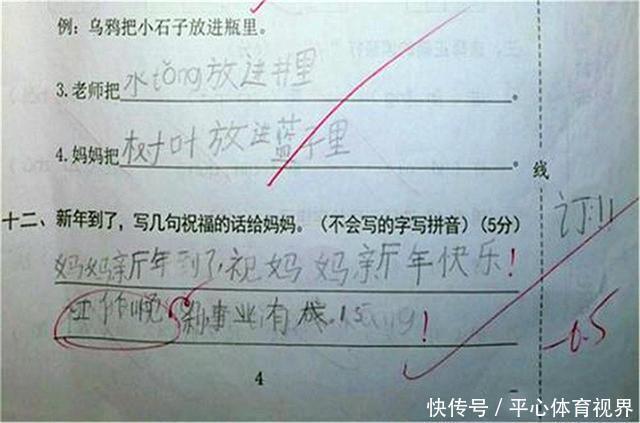 例：乌鸦把小石子放进瓶里。
3.老师把水tǒng放进井里。
4.妈妈把树叶放进蓝子里。
线
订
十二、新年到了，写几句祝福的话给妈妈。（不会写的字写拼音）（5分）
妈妈新年到了,祝妈妈新年快乐!
事业有成!
-0.5
4
快传号／平心体育视界